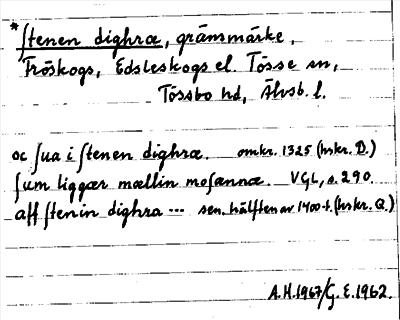 *ſtenen dighræ, gränsmärke,
Fröskogs, Edsleskogs el. Tösse sn,
Tössbo hd, Älvsb. l.
oc ſua i ſtenen dighræ. omkr. 1325 (hskr. D.)
ſum liggær mællin moſannæ. VGL, s. 290.
aff ſtenin dighra --- sen. hälften av 1400-t. (hskr. Q.)
A.H. 1967/G. E. 1962.